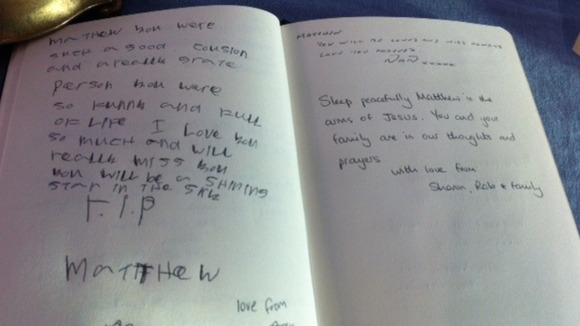 matthew you were
such a good cousion
and a really grate
person you were
so funny and full
of life I love you
so much and will
really miss you
you will be a shining
star in the sky
r.I.P
MaTTHew
love from
Matthew
You will be loved and will always
love you forever
Nan xxxxx
Sleep peacefully Matthew in the
arms of Jesus. You and your
family are in our thoughts and
prayers
with love from
Sharon, Rob & family